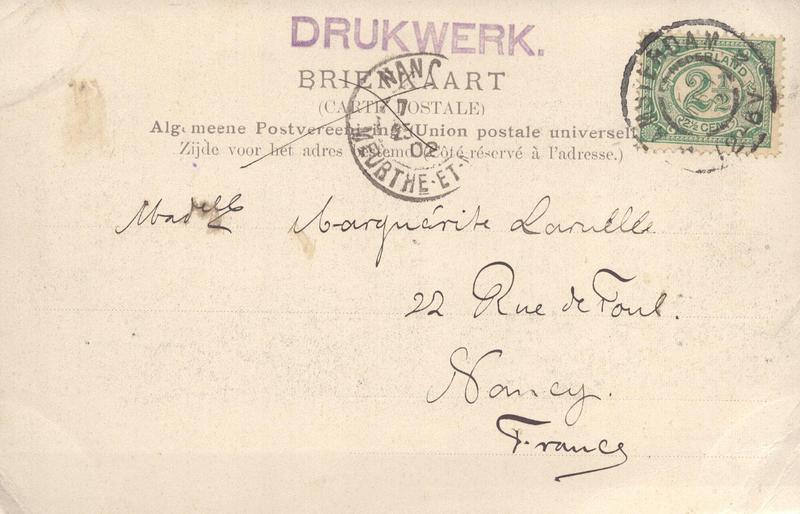 DRUKWERK.
BRIEFKAART
(CARTE POSTALE)
Algemeene Postvereeniging (Union postale universelle)
Zijde voor het adres bestemd. (Côté réservé à l'adresse.)
NANCY
7
25
02
MEURTHE-ET-
AMSTERDAM
NEDERLAND
2½
(2½ CENT)
Madelle Marguérite Laruelle
22 Rue de Toul.
Nancy.
France